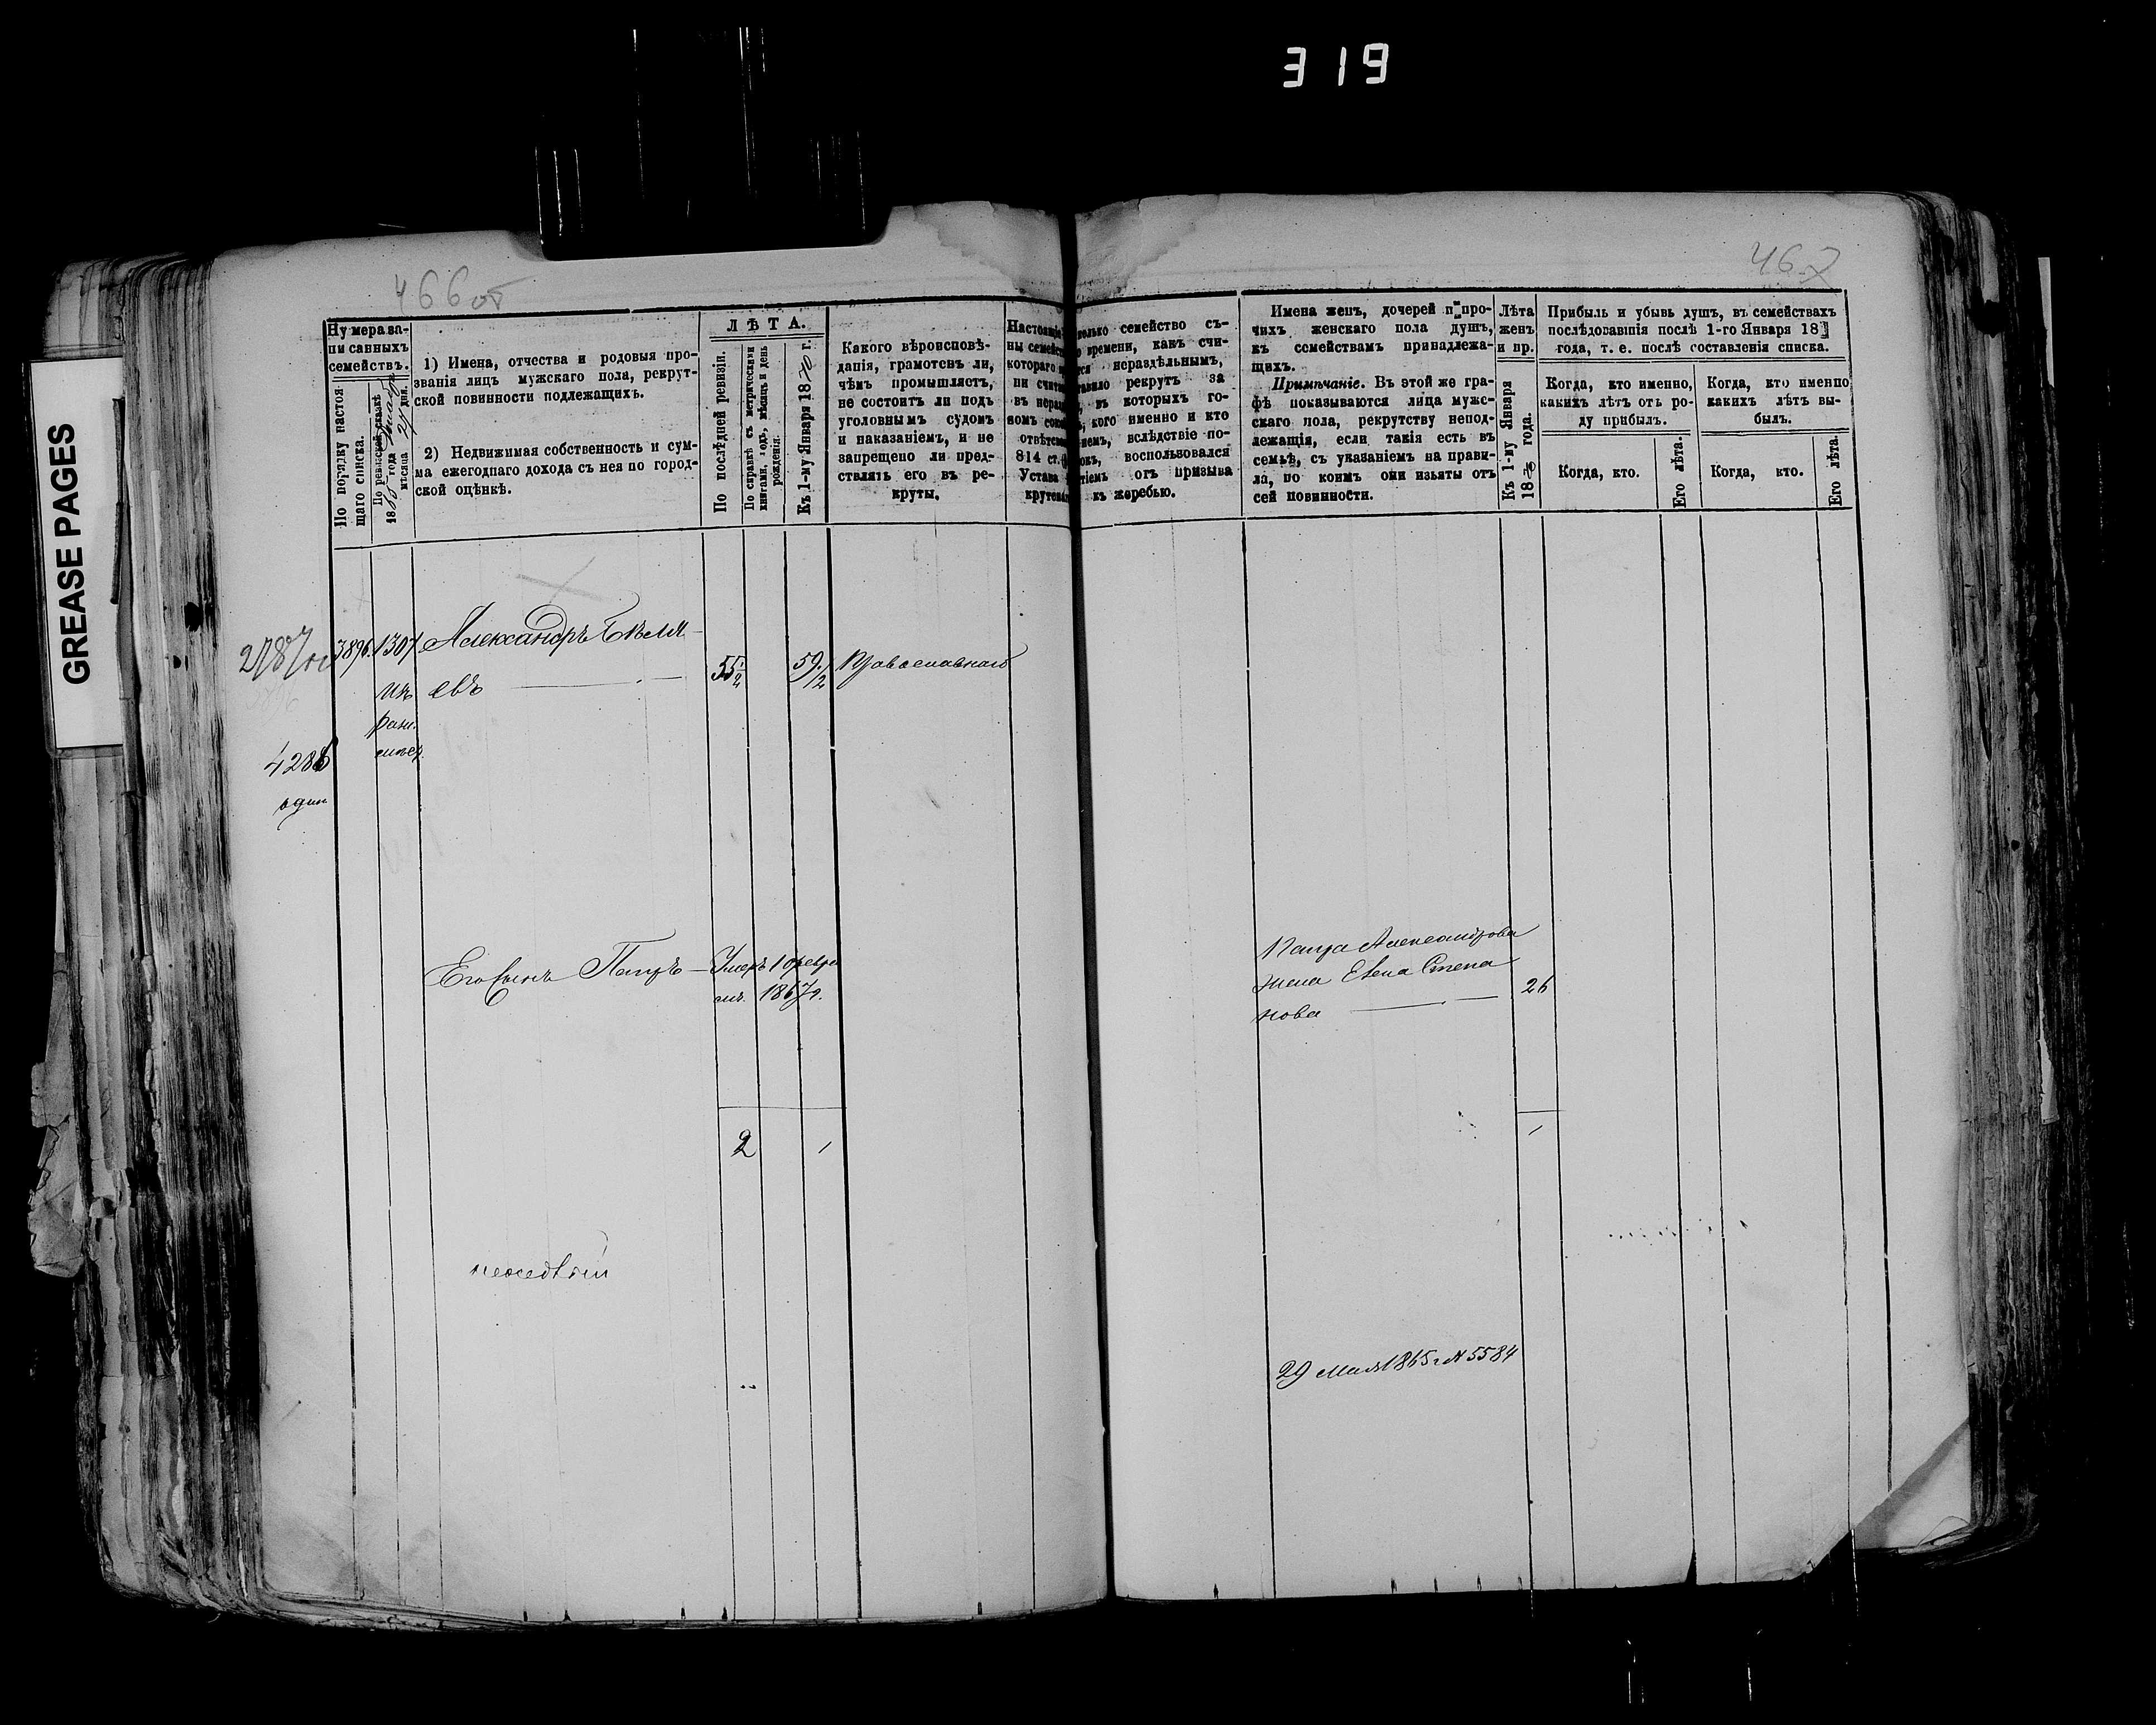 319
GREASE PAGES
466 об
467
Нумера за-
писанныхъ
семействъ.
По порядку настоя-
щаго списка.
По ревизской сказкѣ
18 года
мѣсяца 24 дня.
1) Имена, отчества и родовыя про-
званія лицъ мужскаго пола, рекрут-
ской повинности подлежащихъ.
2) Недвижимая собственность и сум-
ма ежегоднаго дохода съ нея по город-
ской оцѣнкѣ.
ЛѢТА.
По послѣдней ревизіи.
По справкѣ съ метрическими
книгами, годъ, мѣсяцъ и день
рожденія.
Къ 1-му Января 1870 г.
Какого вѣроисповѣ-
данія, грамотенъ ли,
чѣмъ промышляетъ,
не состоитъ ли подъ
уголовнымъ судомъ
и наказаніемъ, и не
запрещено ли пред-
ставлять его въ ре-
круты.
Настояще
ны семейст
котораго
ни счита
въ нераз
номъ сос
отвѣтств
814 ст.
Устава
крутска
колько семейство съ-
времени, какъ счи-
тся нераздѣльнымъ,
тавило рекрутъ за
въ которыхъ го-
кого именно и кто
ніемъ, вслѣдствіе по-
окъ, воспользовался
тіемъ отъ призыва
къ жеребью.
Имена женъ, дочерей и про-
чихъ женскаго пола душъ,
къ семействамъ принадлежа-
щихъ.
Примѣчаніе. Въ этой же гра-
фѣ показываются лица мужс-
каго пола, рекрутству непод-
лежащія, если такія есть въ
семьѣ, съ указаніемъ на прави-
ла, по коимъ они изъяты отъ
сей повинности.
Лѣта
женъ
и пр.
Къ 1-му Января
1870 года.
Прибыль и убыль душъ, въ семействахъ
послѣдовавшія послѣ 1-го Января 18
года, т. е. послѣ составленія списка.
Когда, кто именно,
какихъ лѣтъ отъ ро-
ду прибылъ.
Когда, кто.
Его лѣта.
Когда, кто именно
какихъ лѣтъ вы-
былъ.
Когда, кто.
Его лѣта.
3896. 1307 Александръ Бѣля-
евъ 55 1/4 59 1/2 Православнаго
из
4286
один
Его сынъ Петръ Умеръ 1 февра
ля 1867 г.
Петра Александрова
жена Елена Степа
нова 26
2 1 1
29 Мая 1865 г. № 5584